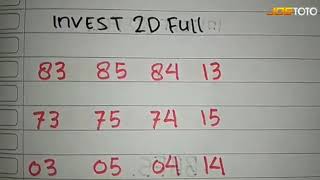 JOSTOTO
INVEST 2D Full
83 85 84 13
73 75 74 15
03 05 04 14